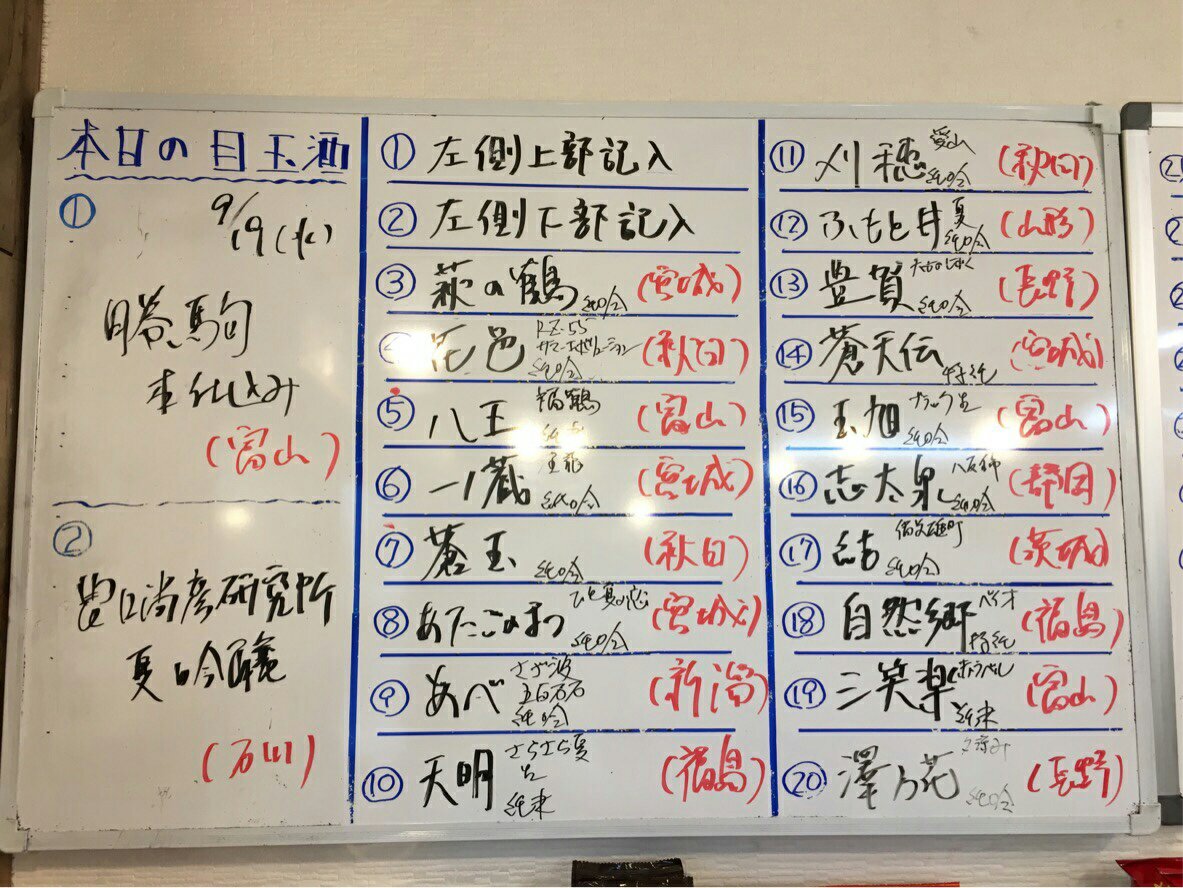 本日の目玉酒
① 9/19(水)
勝駒
本仕込み
(富山)
②
農口尚彦研究所
夏吟醸
(石川)
① 左側上部記入
② 左側下部記入
③ 萩の鶴 純吟 (宮城)
④ 花邑 純吟 (秋田)
⑤ 八王 (富山)
⑥ 一ノ蔵 純吟 (宮城)
⑦ 蒼玉 純吟 (秋田)
⑧ あたごのまつ ひと夏の恋 純吟 (宮城)
⑨ あべ 純吟 (新潟)
⑩ 天明 さらさら夏 生 純米 (福島)
⑪ 刈穂 純吟 (秋田)
⑫ ふもと井 夏 純吟 (山形)
⑬ 豊賀 純吟 (長野)
⑭ 蒼天伝 特純 (宮城)
⑮ 玉旭 純吟 (富山)
⑯ 志太泉 八反錦 純吟 (静岡)
⑰ 結 備前雄町 純吟 (茨城)
⑱ 自然郷 特純 (福島)
⑲ 三笑楽 純米 (富山)
⑳ 澤乃花 夕涼み 純吟 (長野)